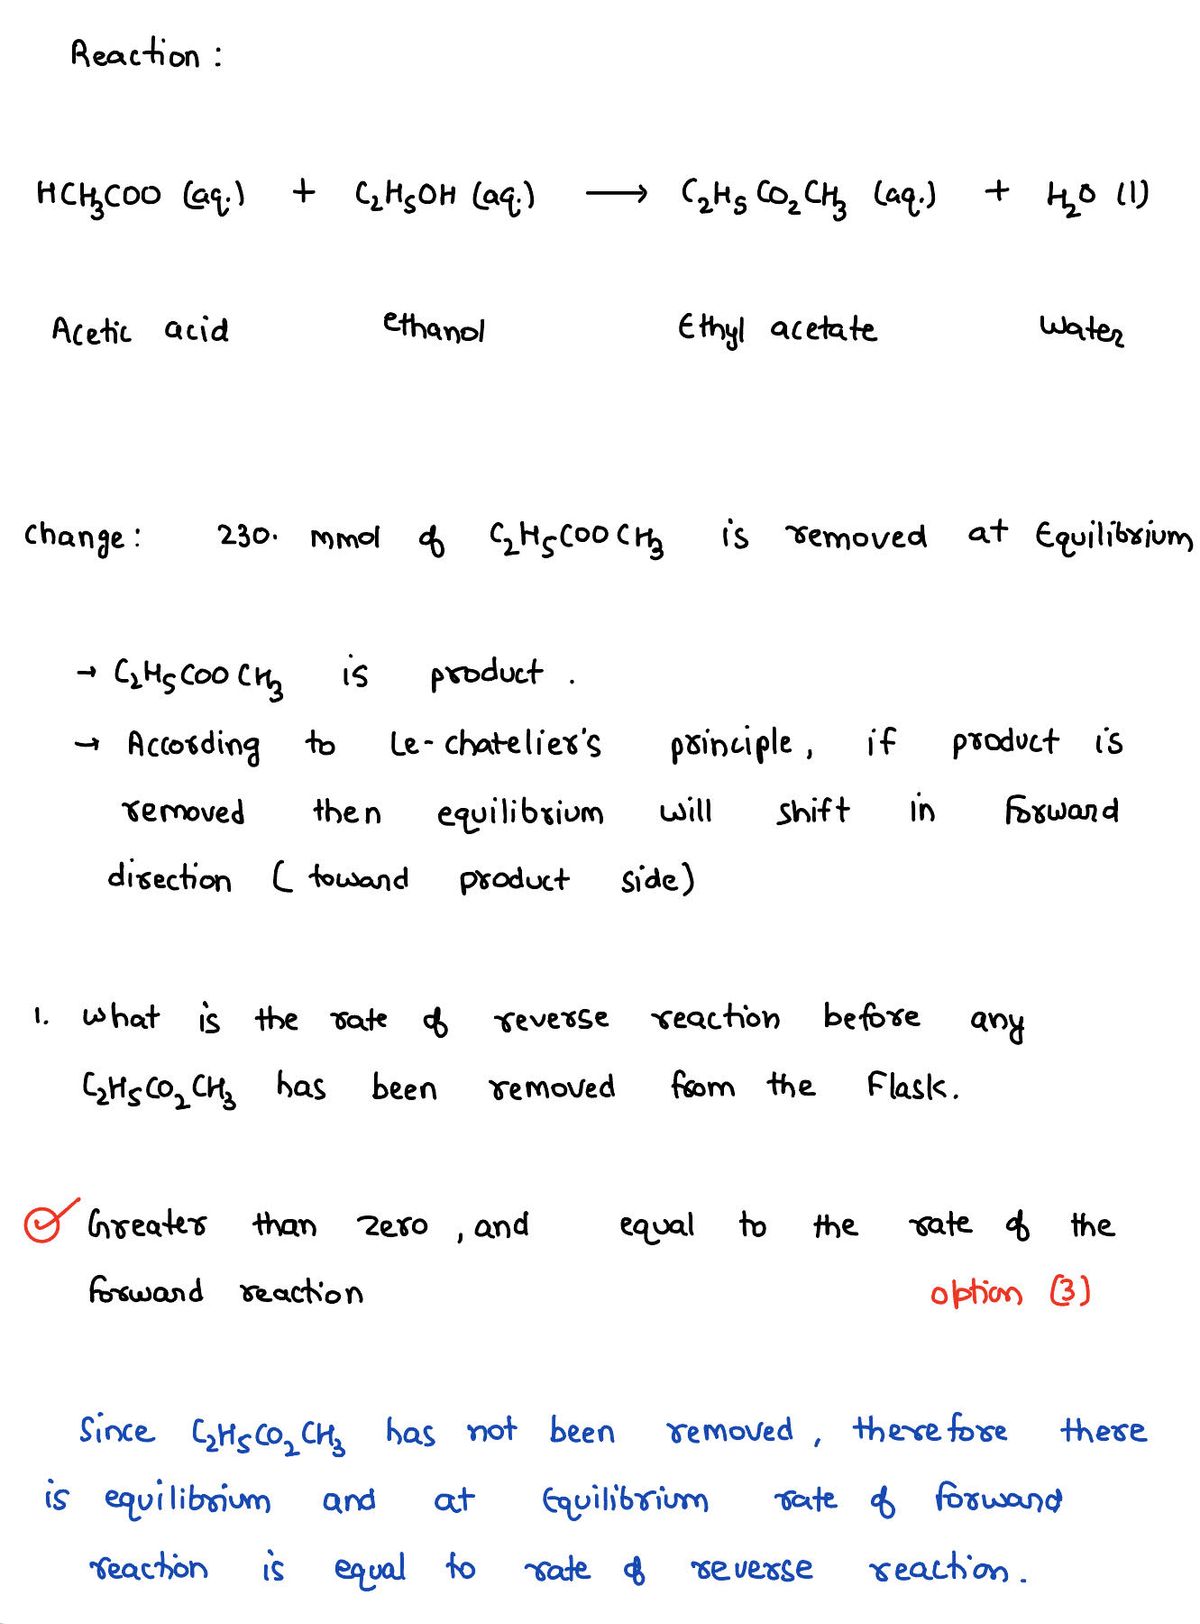 Reaction :
HCH₃COO (aq.) + C₂H₅OH (aq.) ⟶ C₂H₅CO₂CH₃ (aq.) + H₂O (l)
Acetic acid ethanol Ethyl acetate water
change: 230. mmol of C₂H₅COOCH₃ is removed at Equilibrium
→ C₂H₅COOCH₃ is product.
→ According to Le-chatelier's principle, if product is
removed then equilibrium will shift in forward
direction (toward product side)
1. what is the rate of reverse reaction before any
C₂H₅CO₂CH₃ has been removed from the Flask.
Greater than zero, and equal to the rate of the
forward reaction option (3)
Since C₂H₅CO₂CH₃ has not been removed, therefore there
is equilibrium and at Equilibrium rate of forward
reaction is equal to rate of reverse reaction.